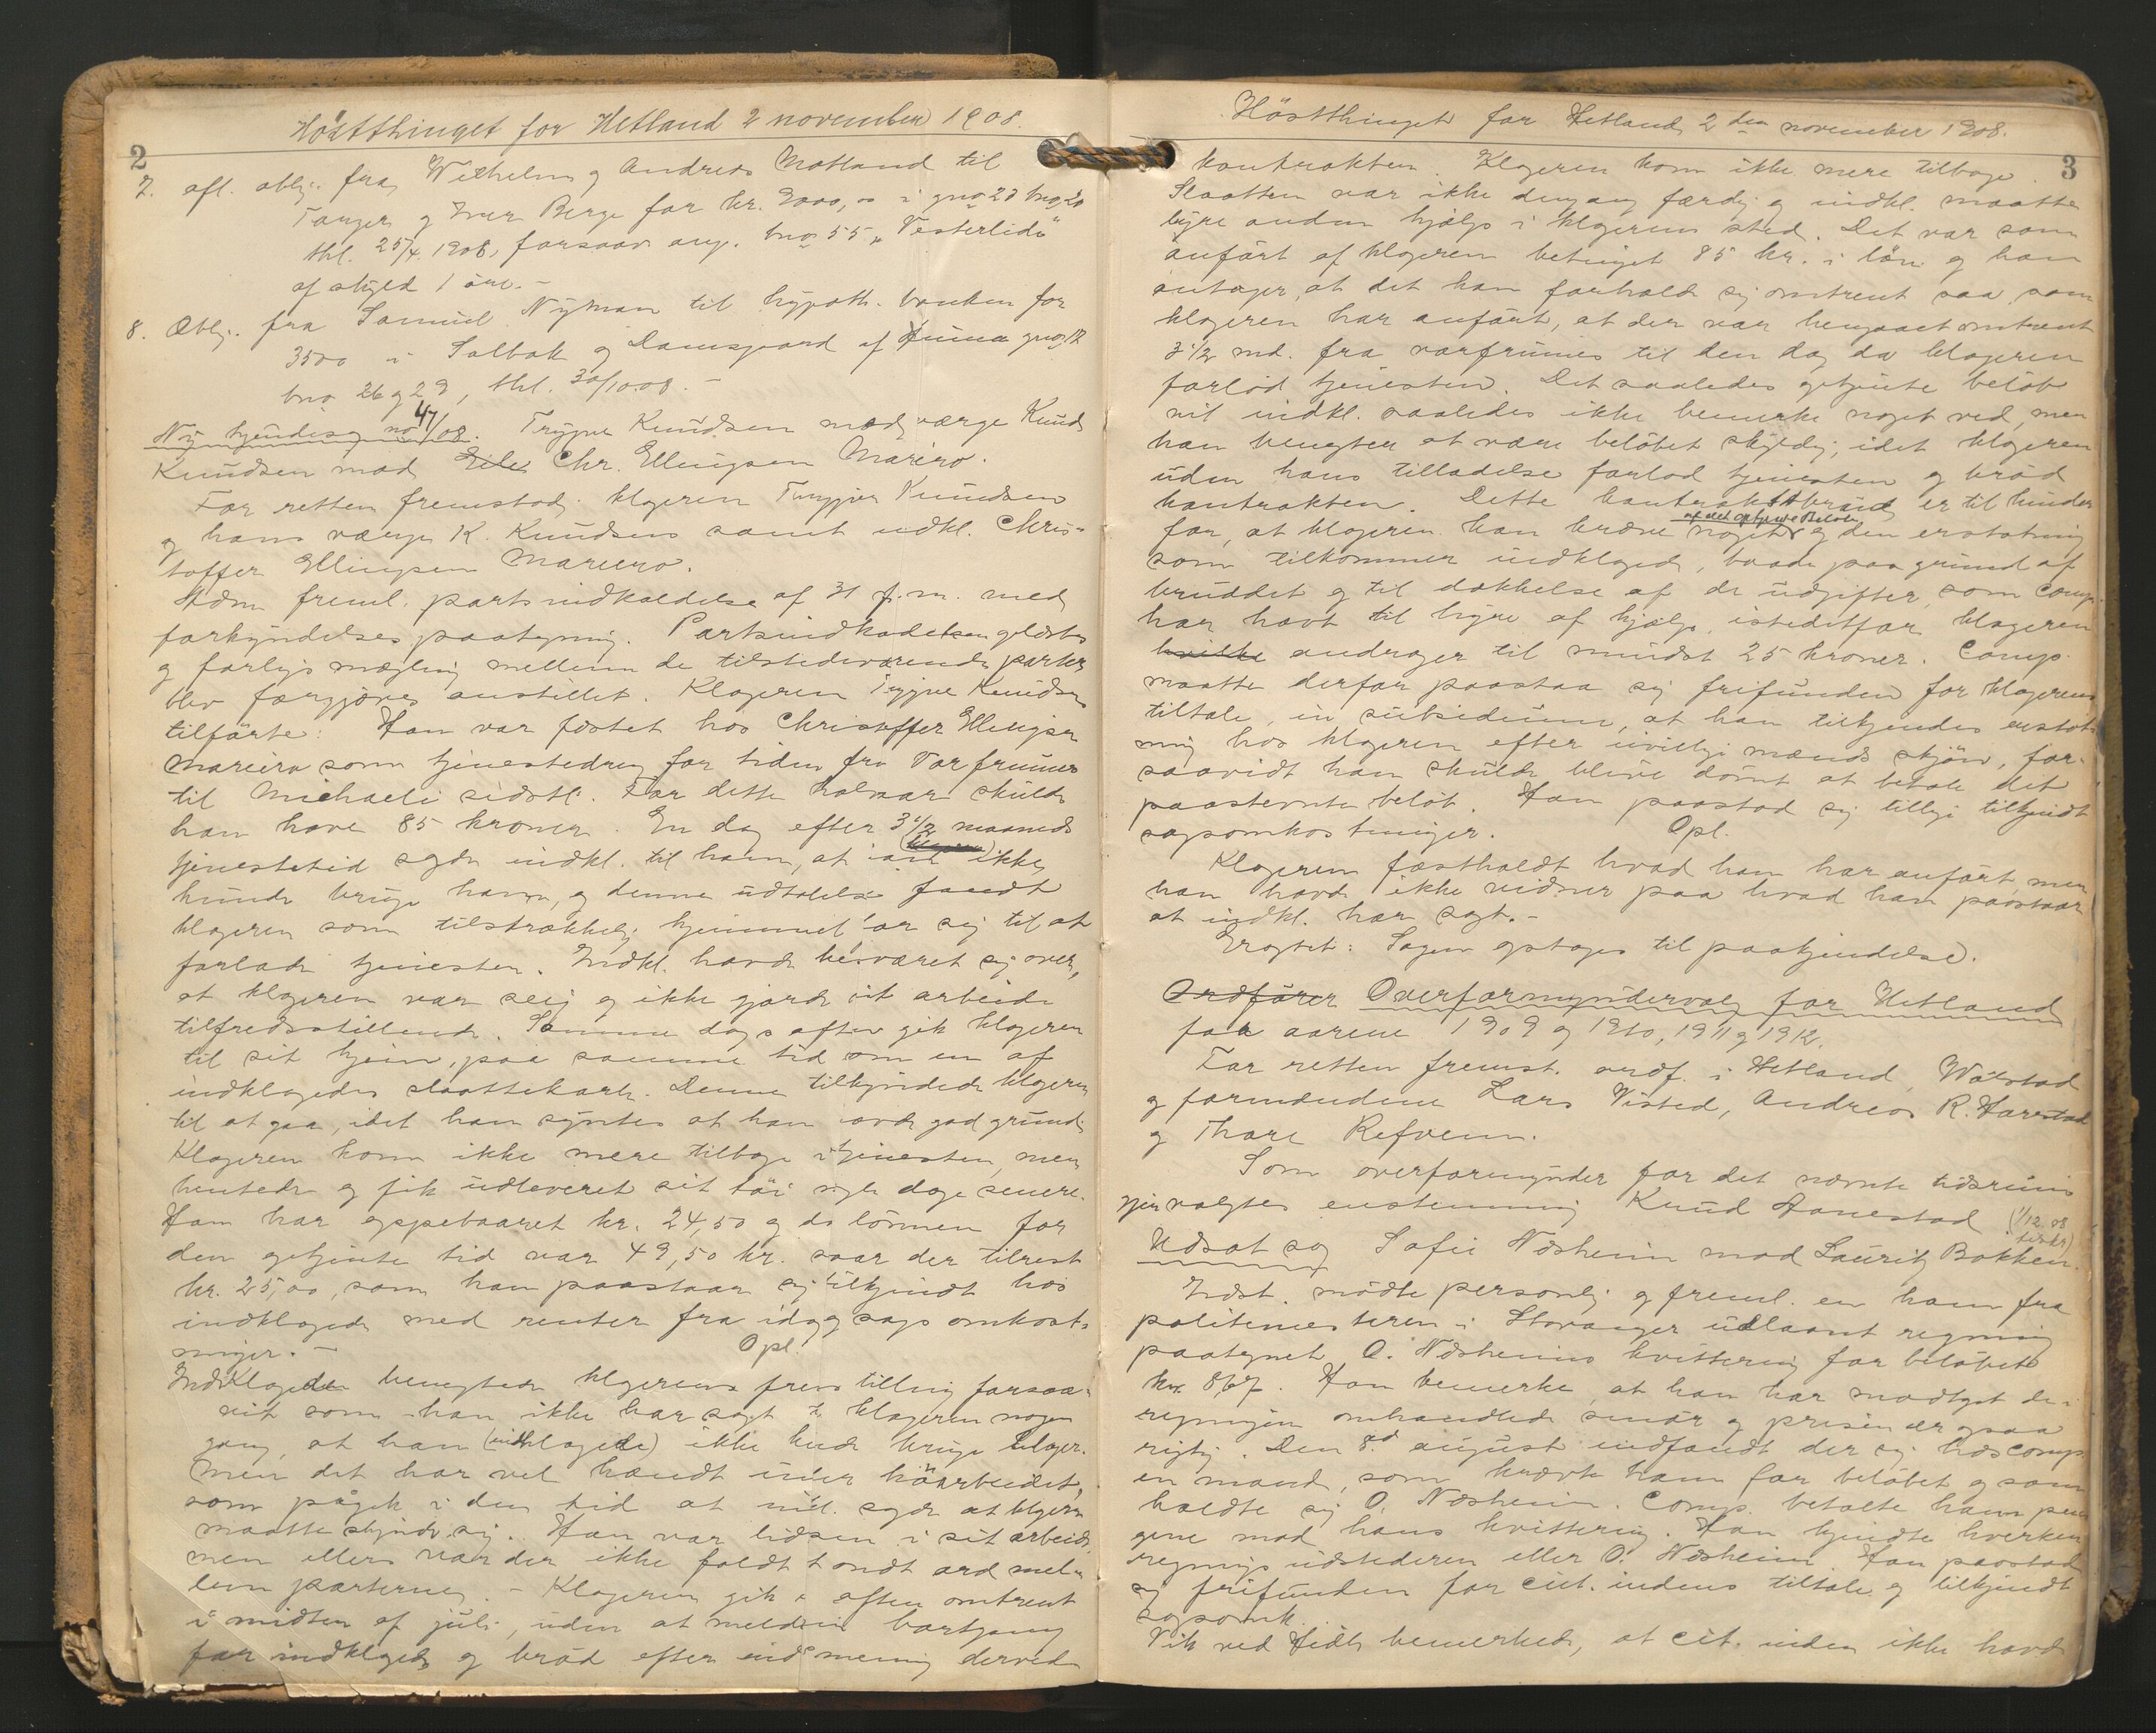 Høstthinget for Hetland 2 november 1908.
2
7. afl. oblig. fra Wilhelm og Andreas Matland til
Tanger og Iver Berge for kr. 3000,00 i gno 23 bno 20
thl. 25/4 1908, forsaav. ang. bno 55 „Vesterlid"
af skyld 1 øre. -
8. Oblig. fra Samuel Nyman til hypoth. banken for
3500 i Solbak og Damsgaard af gno 12
bno 26 og 29, thl. 30/10.08. -
Ny tjenestesag no 47/08. Trygve Knudsen med værge Knud
Knudsen mod Chr. Ellingsen Mariero.
For retten fremstod klageren Trygve Knudsen
og hans værge K. Knudsen samt indkl. Chris-
toffer Ellingsen Mariero.
freml. partsindkaldelse af 31 f.m. med
forkyndelsespaategning. Partsindkaldelsen oplæstes
og forligsmægling mellem de tilstedeværende parter
blev forgjæves anstillet. Klageren Trygve Knudsen
tilførte: Han var fæstet hos Christoffer Ellingsen
Mariero som tjenestedreng for tiden fra Varfrumes
til Michaeli sidstl. For dette halvaar skulde
han have 85 kroner. En dag efter 3 1/2 maaneds
tjenestetid sagde indkl. til ham, at han ikke
kunde bruge ham, og denne udtalelse fandt
klageren som tilstrækkelig hjemmel for sig til at
forlade tjenesten. Indkl. havde besværet sig over,
at klageren var seig og ikke gjorde sit arbeide
tilfredsstillende. Samme dags aften gik klageren
til sit hjem, paa samme tid som en af
indklagedes slaattekarle. Denne tilskyndede klageren
til at gaa, idet han syntes at han havde god grund.
Klageren kom ikke mere tilbage i tjenesten, men
hentede og fik udleveret sit tøi nogle dage senere.
Han har oppebaaret kr. 24,50 og da lønnen for
den optjente tid var 49,50 kr. staar der tilrest
kr. 25,00, som han paastaar sig tilkjendt hos
indklagede med renter fra idag og sagsomkost-
ninger. - Opl.
Indklagede benegtede klagerens fremstilling forsaa-
vidt som han ikke har sagt til klageren nogen
gang, at han (indklagede) ikke kunde bruge klager.
Men det har vel hændt under høiarbeidet,
som pågik i den tid at indkl. sagde at klageren
maatte skynde sig. Han var lidsen i sit arbeide,
men ellers var der ikke faldt et ondt ord mel-
lem parterne. - Klageren gik en aften omtrent
i midten af juli, uden at melde sin bortgang
for indklagede og brød efter indkl mening derved
Høstthinget for Hetland 2den november 1908.
3
kontrakten. Klageren kom ikke mere tilbage.
Slaatten var ikke dengang færdig og indkl. maatte
leye anden hjælp i klagerens sted. Det var som
anført af klageren betinget 85 kr. i løn og han
antager, at det han forholdt sig omtrent saa som
klageren har anført, at der var hengaaet omtrent
3 1/2 md. fra varfrumes til den dag da klageren
forlod tjenesten. Det saaledes optjente beløb
vil indkl. saaledes ikke bemerke noget ved, men
han benegter at være beløbet skyldig, idet klageren
uden hans tilladelse forlod tjenesten og brød
kontrakten. Dette kontraktsbrud er til hinder
af det optjente Beløb
for, at klageren kan kræve noget og den erstatning
som tilkommer indklagede, baade paa grund af
bruddet og til dækkelse af de udgifter, som comp.
har havt til hyre af hjælp istedetfor klageren
hvilke andrager til mindst 25 kroner. Comp.
maatte derfor paastaa sig frifunden for klagerens
tiltale, in subsidium, at han tilkjendes erstat-
ning hos klageren efter uvillige mænds skjøn, for-
saavidt han skulde blive dømt at betale det
paastevnte beløb. Han paastod sig tillige tilkjendt
sagsomkostninger. Opl.
Klageren fastholdt hvad han har anført, men
han havde ikke vidner paa hvad han paastaar
at indkl. har sagt. -
Eragtet: Sagen optages til paakjendelse.
Ordfører Overformyndervalg for Hetland
for aarene 1909 og 1910, 1911 og 1912.
For retten fremst. ordf. i Hetland, Wølstad
og formændene Lars Visted, Andreas R. Harestad
og Thore Refvem.
Som overformynder for det nævnte tidsrum
gjenvalgtes enstemmig Knud Hanestad (1/12 08
beskr)
Udsat sag Sofie Næsheim mod Lauritz Bokken.
Indst. mødte personlig og freml. en ham fra
politimesteren i Stavanger udlaant regning
paategnet O. Næsheims kvittering for beløbet
kr. 8,67. Han bemerke, at han har modtaget de i
regningen omhandlede smør og prisen er ogsaa
rigtig. Den 8d august indfandt der sig hos comp.
en mand, som krævte ham for beløbet og som
kaldte sig O. Næsheim. Comp. betalte ham pen-
gene mod hans kvittering. Han kjendte hverken
regnings udstederen eller O. Næsheim. Han paastod
sig frifunden for citantindens tiltale og tilkjendt
sagsomk.
Vik ved Hidle bemerkede, at citantinden ikke havde